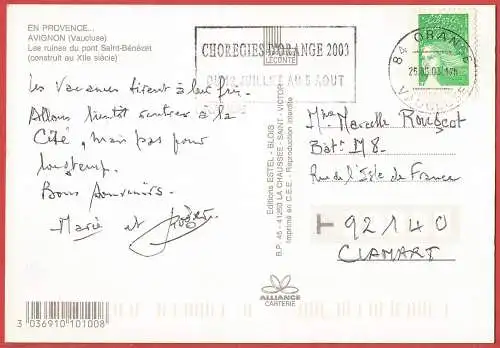 EN PROVENCE...
AVIGNON (Vaucluse)
Les ruines du pont Saint-Bénézet
(construit au XIIe siècle)
CHOREGIES D'ORANGE 2003
LECONTE
DU 12 JUILLET AU 5 AOUT
84 ORANGE
VAUCLUSE
Les Vacances tirent à leur fin.
Allons bientôt rentrer à la
Cité, mais pas pour
longtemp.
Bons Souvenirs.
Marie et
Editions ESTEL - BLOIS
B.P. 45 - 41260 LA CHAUSSEE - SAINT - VICTOR
Imprimé en C.E.E. - Reproduction interdite
Mme Marcelle
Bât: M8.
Rue de l'Isle de France
T 92140
CLAMART
ALLIANCE
CARTERIE
3 036910 101008